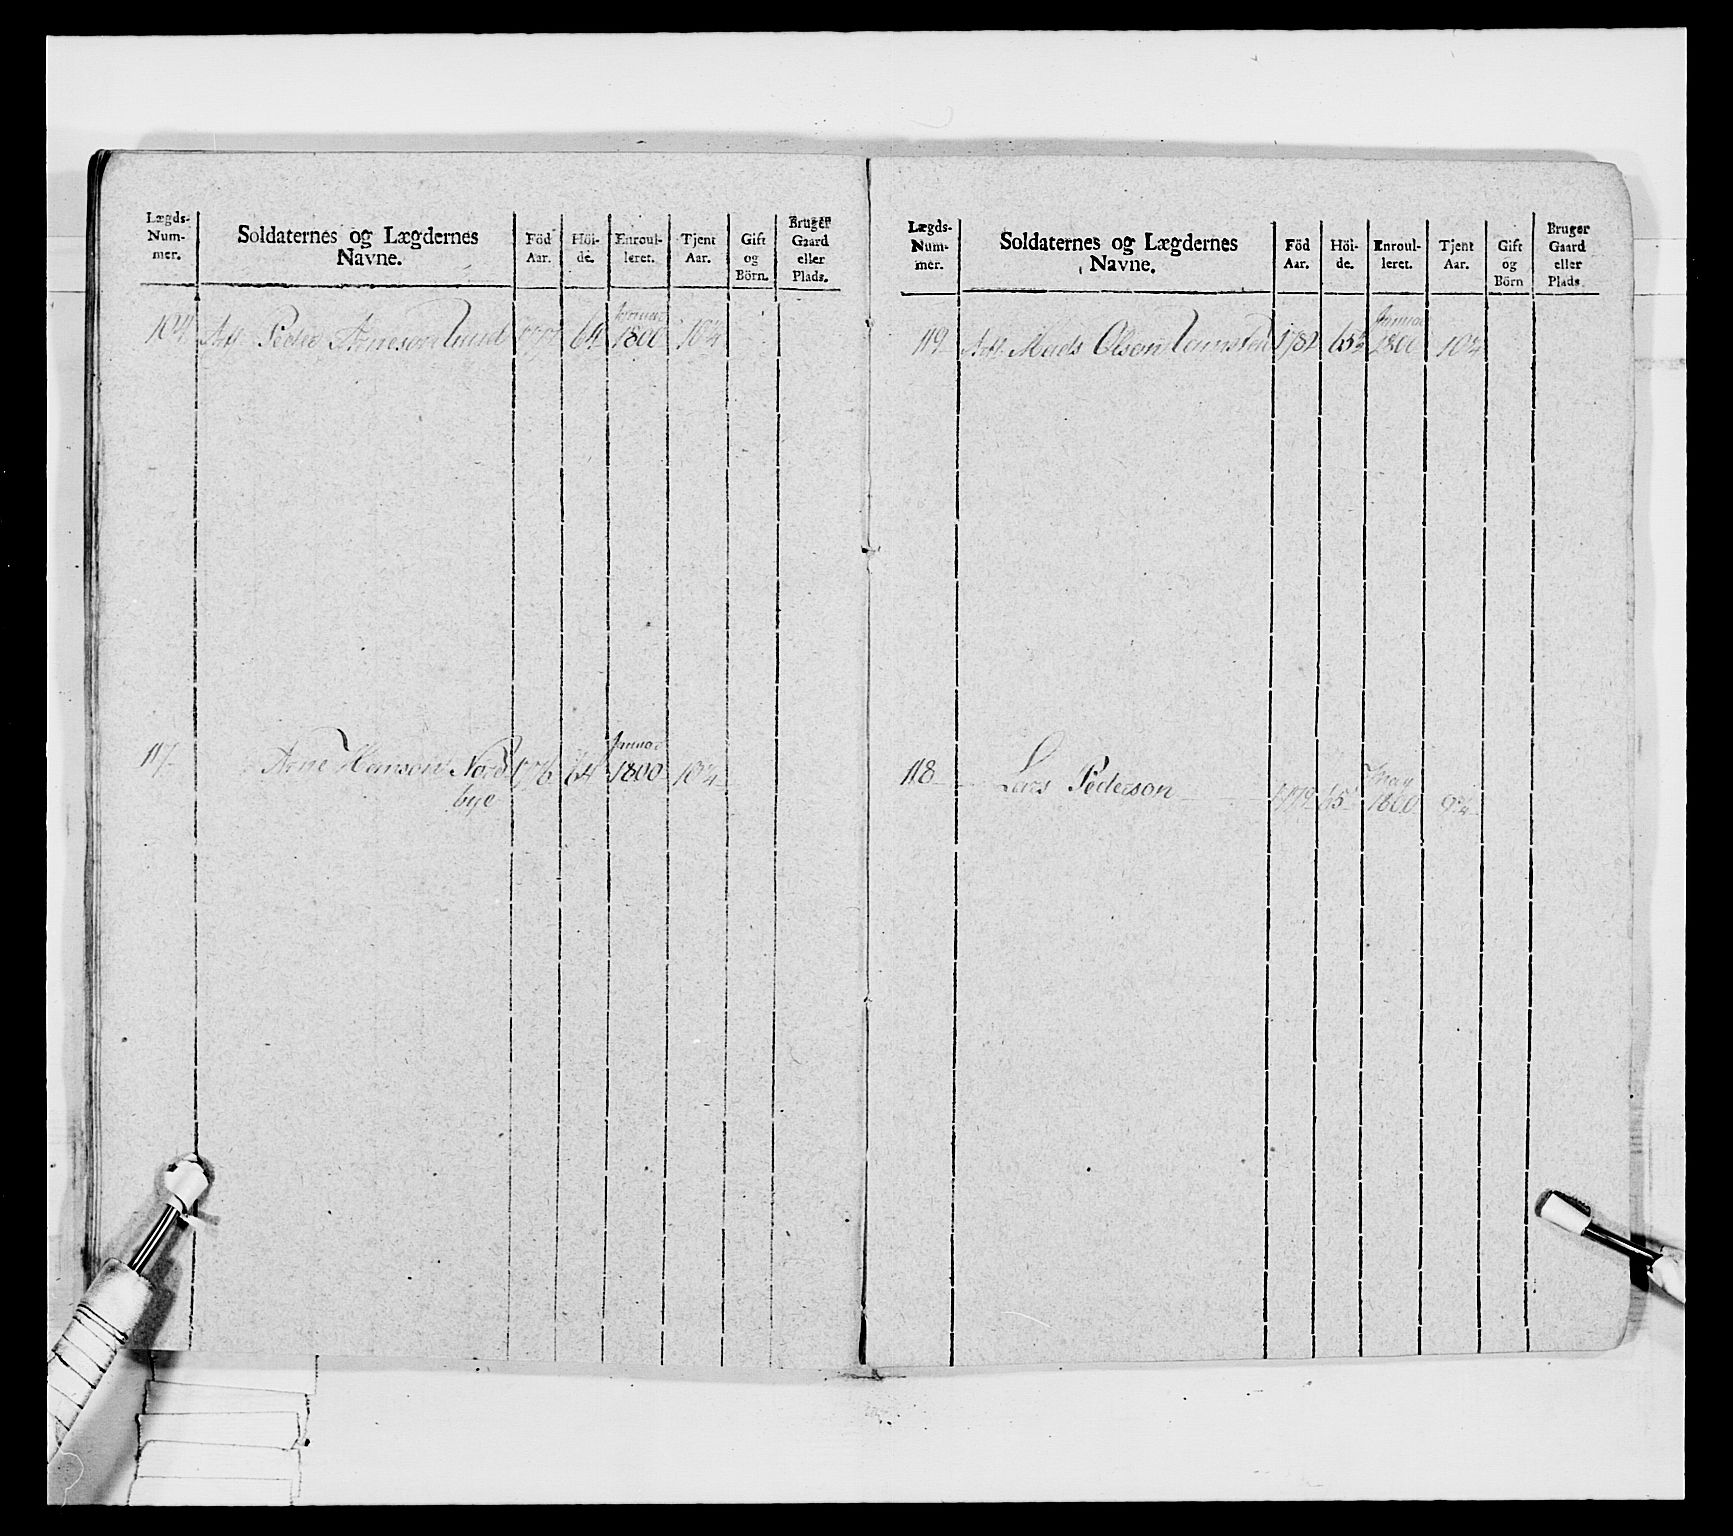 Lægds-
Num-
mer.
Soldaternes og Lægdernes
Navne.
Föd
Aar.
Höi-
de.
Enroul-
leret.
Tjent
Aar.
Gift
og
Börn.
Bruger
Gaard
eller
Plads.
104 Peder Arneson Lund 1777 64 1800 10¼
117 Arne Hanson Nord 1776 64 Januar 1800 10¼
bye
Lægds-
Num-
mer.
Soldaternes og Lægdernes
Navne.
Föd
Aar.
Höi-
de.
Enroul-
leret.
Tjent
Aar.
Gift
og
Börn
Bruger
Gaard
eller
Plads.
119 Mads Olson 1782 Januar 1800 10¼
118 Lars Pederson 1779 May 1800